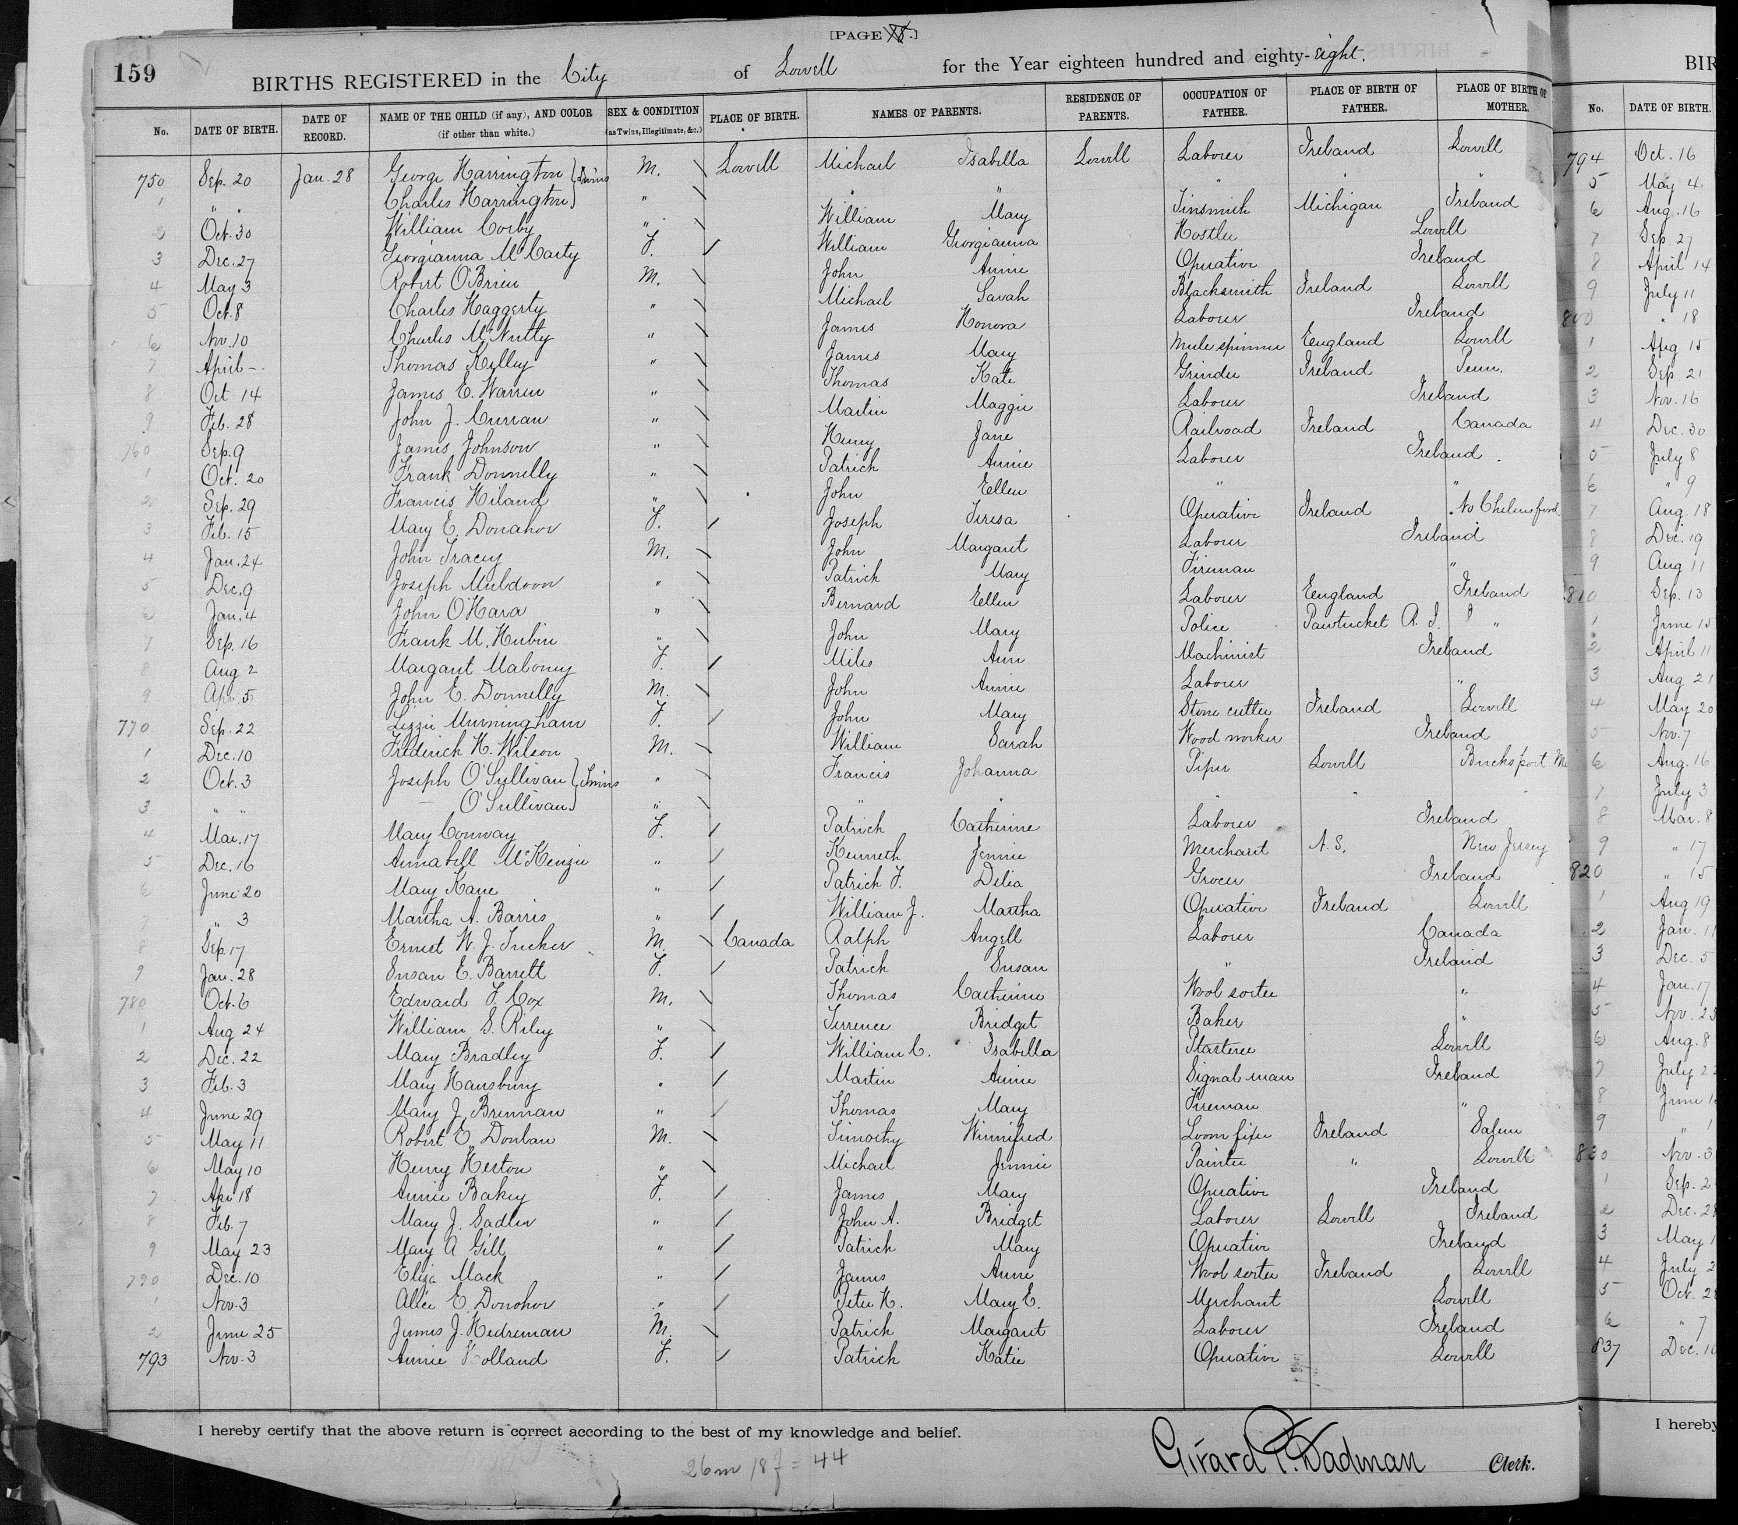 [PAGE 18.]
159
BIRTHS REGISTERED in the City of Lowell for the Year eighteen hundred and eighty-eight.
No. DATE OF BIRTH. DATE OF RECORD. NAME OF THE CHILD (if any), AND COLOR (if other than white.) SEX & CONDITION (as Twins, Illegitimate, &c.) PLACE OF BIRTH. NAMES OF PARENTS. RESIDENCE OF PARENTS. OCCUPATION OF FATHER. PLACE OF BIRTH OF FATHER. PLACE OF BIRTH OF MOTHER.
750 Sep. 20 Jan. 28 George Harrington } Twins M. Lowell Michael Isabella Lowell Laborer Ireland Lowell
1 " " Charles Harrington } " " " " " "
2 Oct. 30 William Corby " William Mary Tinsmith Michigan Ireland
3 Dec. 27 Georgianna McCarty F. William Georgianna Hostler Lowell
4 May 3 Robert O'Brien M. John Annie Operative Ireland
5 Oct. 8 Charles Haggerty " Michael Sarah Blacksmith Ireland Lowell
6 Nov. 10 Charles McNulty " James Honora Laborer Ireland
7 April - Thomas Kelley " James Mary Mule spinner England Lowell
8 Oct 14 James E. Warren " Thomas Kate Grinder Ireland Penn.
9 Feb. 28 John J. Curran " Martin Maggie Laborer Ireland
760 Sep. 9 James Johnson " Henry Jane Railroad Ireland Canada
1 Oct. 20 Frank Donnelly " Patrick Annie Laborer Ireland
2 Sep. 29 Francis Hiland " John Ellen " "
3 Feb. 15 Mary E. Donahoe F. Joseph Teresa Operative Ireland No Chelmsford
4 Jan. 24 John Tracey M. John Margaret Laborer Ireland
5 Dec. 9 Joseph Muldoon " Patrick Mary Fireman "
6 Jan. 4 John O'Hara " Bernard Ellen Laborer England Ireland
7 Sep. 16 Frank M. " John Mary Police Pawtucket R. I. "
8 Aug 2 Margaret Maloney F. Miles Ann Machinist Ireland
9 Apr. 5 John E. Donnelly M. John Annie Laborer "
770 Sep. 22 Lizzie Murningham F. John Mary Stone cutter Ireland Lowell
1 Dec. 10 Frederick H. Wilson M. William Sarah Wood worker Ireland
2 Oct. 3 Joseph O'Sullivan } Twins " Francis Johanna Piper Lowell Bucksport Me
3 " " — O'Sullivan } " " " " " "
4 Mar. 17 Mary Conway F. Patrick Catherine Laborer Ireland
5 Dec. 16 Annabell McKenzie " Kenneth Jennie Merchant N. S. New Jersey
6 June 20 Mary Kane " Patrick F. Delia Grocer Ireland
7 " 3 Martha A. Barris " William J. Martha Operative Ireland Lowell
8 Sep. 17 Ernest W. J. Tucker M. Canada Ralph Angell Laborer Canada
9 Jan. 28 Susan E. Barrett F. Patrick Susan " Ireland
780 Oct. 6 Edward F. Cox M. Thomas Catherine Wool sorter "
1 Aug 24 William S. Riley " Terrence Bridget Baker "
2 Dec. 22 Mary Bradley F. William C. Isabella Lowell
3 Feb. 3 Mary Hansbury " Martin Annie Signal man Ireland
4 June 29 Mary J. Brennan " Thomas Mary Fireman "
5 May 11 Robert E. Donlan M. Timothy Winnifred Loom fixer Ireland Salem
6 May 10 Henry Heston " Michael Jennie Painter " Lowell
7 Apr 18 Annie Bakey F. James Mary Operative Ireland
8 Feb. 7 Mary J. Sadler " John A. Bridget Laborer Lowell Ireland
9 May 23 Mary A Gill " Patrick Mary Operative Ireland
790 Dec. 10 Eliza Mack " James Anne Wool sorter Ireland Lowell
1 Nov. 3 Alice E. Donohoe " Peter H. Mary E. Merchant Lowell
2 June 25 James J. Hedreman M. Patrick Margaret Laborer Ireland
793 Nov. 3 Annie Holland F. Patrick Katie Operative Lowell
I hereby certify that the above return is correct according to the best of my knowledge and belief.
26m 18f = 44
Girard P. Dadman Clerk.
BIR
No. DATE OF BIRTH.
794 Oct. 16
5 May 4
6 Aug. 16
7 Sep. 27
8 April 14
9 July 11
800 " 18
1 Aug 15
2 Sep. 21
3 Nov. 16
4 Dec. 30
5 July 8
6 " 9
7 Aug. 18
8 Dec. 19
9 Aug 11
810 Sep. 13
1 June 15
2 April 11
3 Aug 21
4 May 20
5 Nov. 7
6 Aug. 16
7 July 3
8 Mar. 8
9 " 17
820 " 15
1 Aug 19
2 Jan. 11
3 Dec. 5
4 Jan. 17
5 Nov. 23
6 Aug. 8
7 July 22
8 June
9 "
830 Nov. 3
1 Sep. 2
2 Dec. 28
3 May 1
4 July 2
5 Oct. 2
6 " 7
837 Dec. 10
I hereby